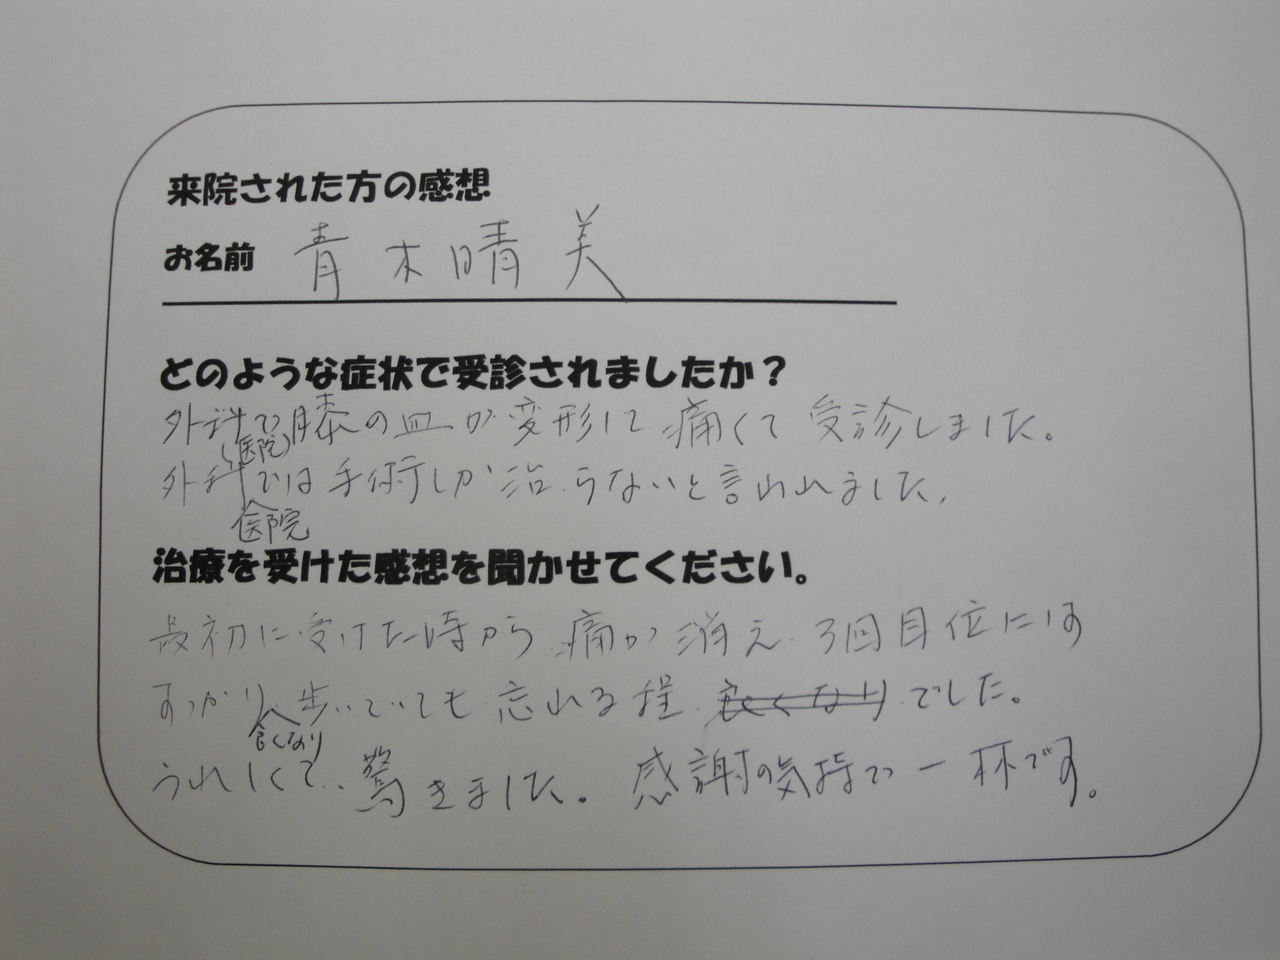 来院された方の感想
お名前 青木晴美
どのような症状で受診されましたか？
外科で膝の皿が変形して痛くて受診しました。
(医院)
外科では手術しか治らないと言われました。
医院
治療を受けた感想を聞かせてください。
最初に受けた時から痛が消え、3回目位には
すっかり、歩いていても忘れる程、良くなりでした。
良くなり
うれしくて、驚きました。感謝の気持で一杯です。